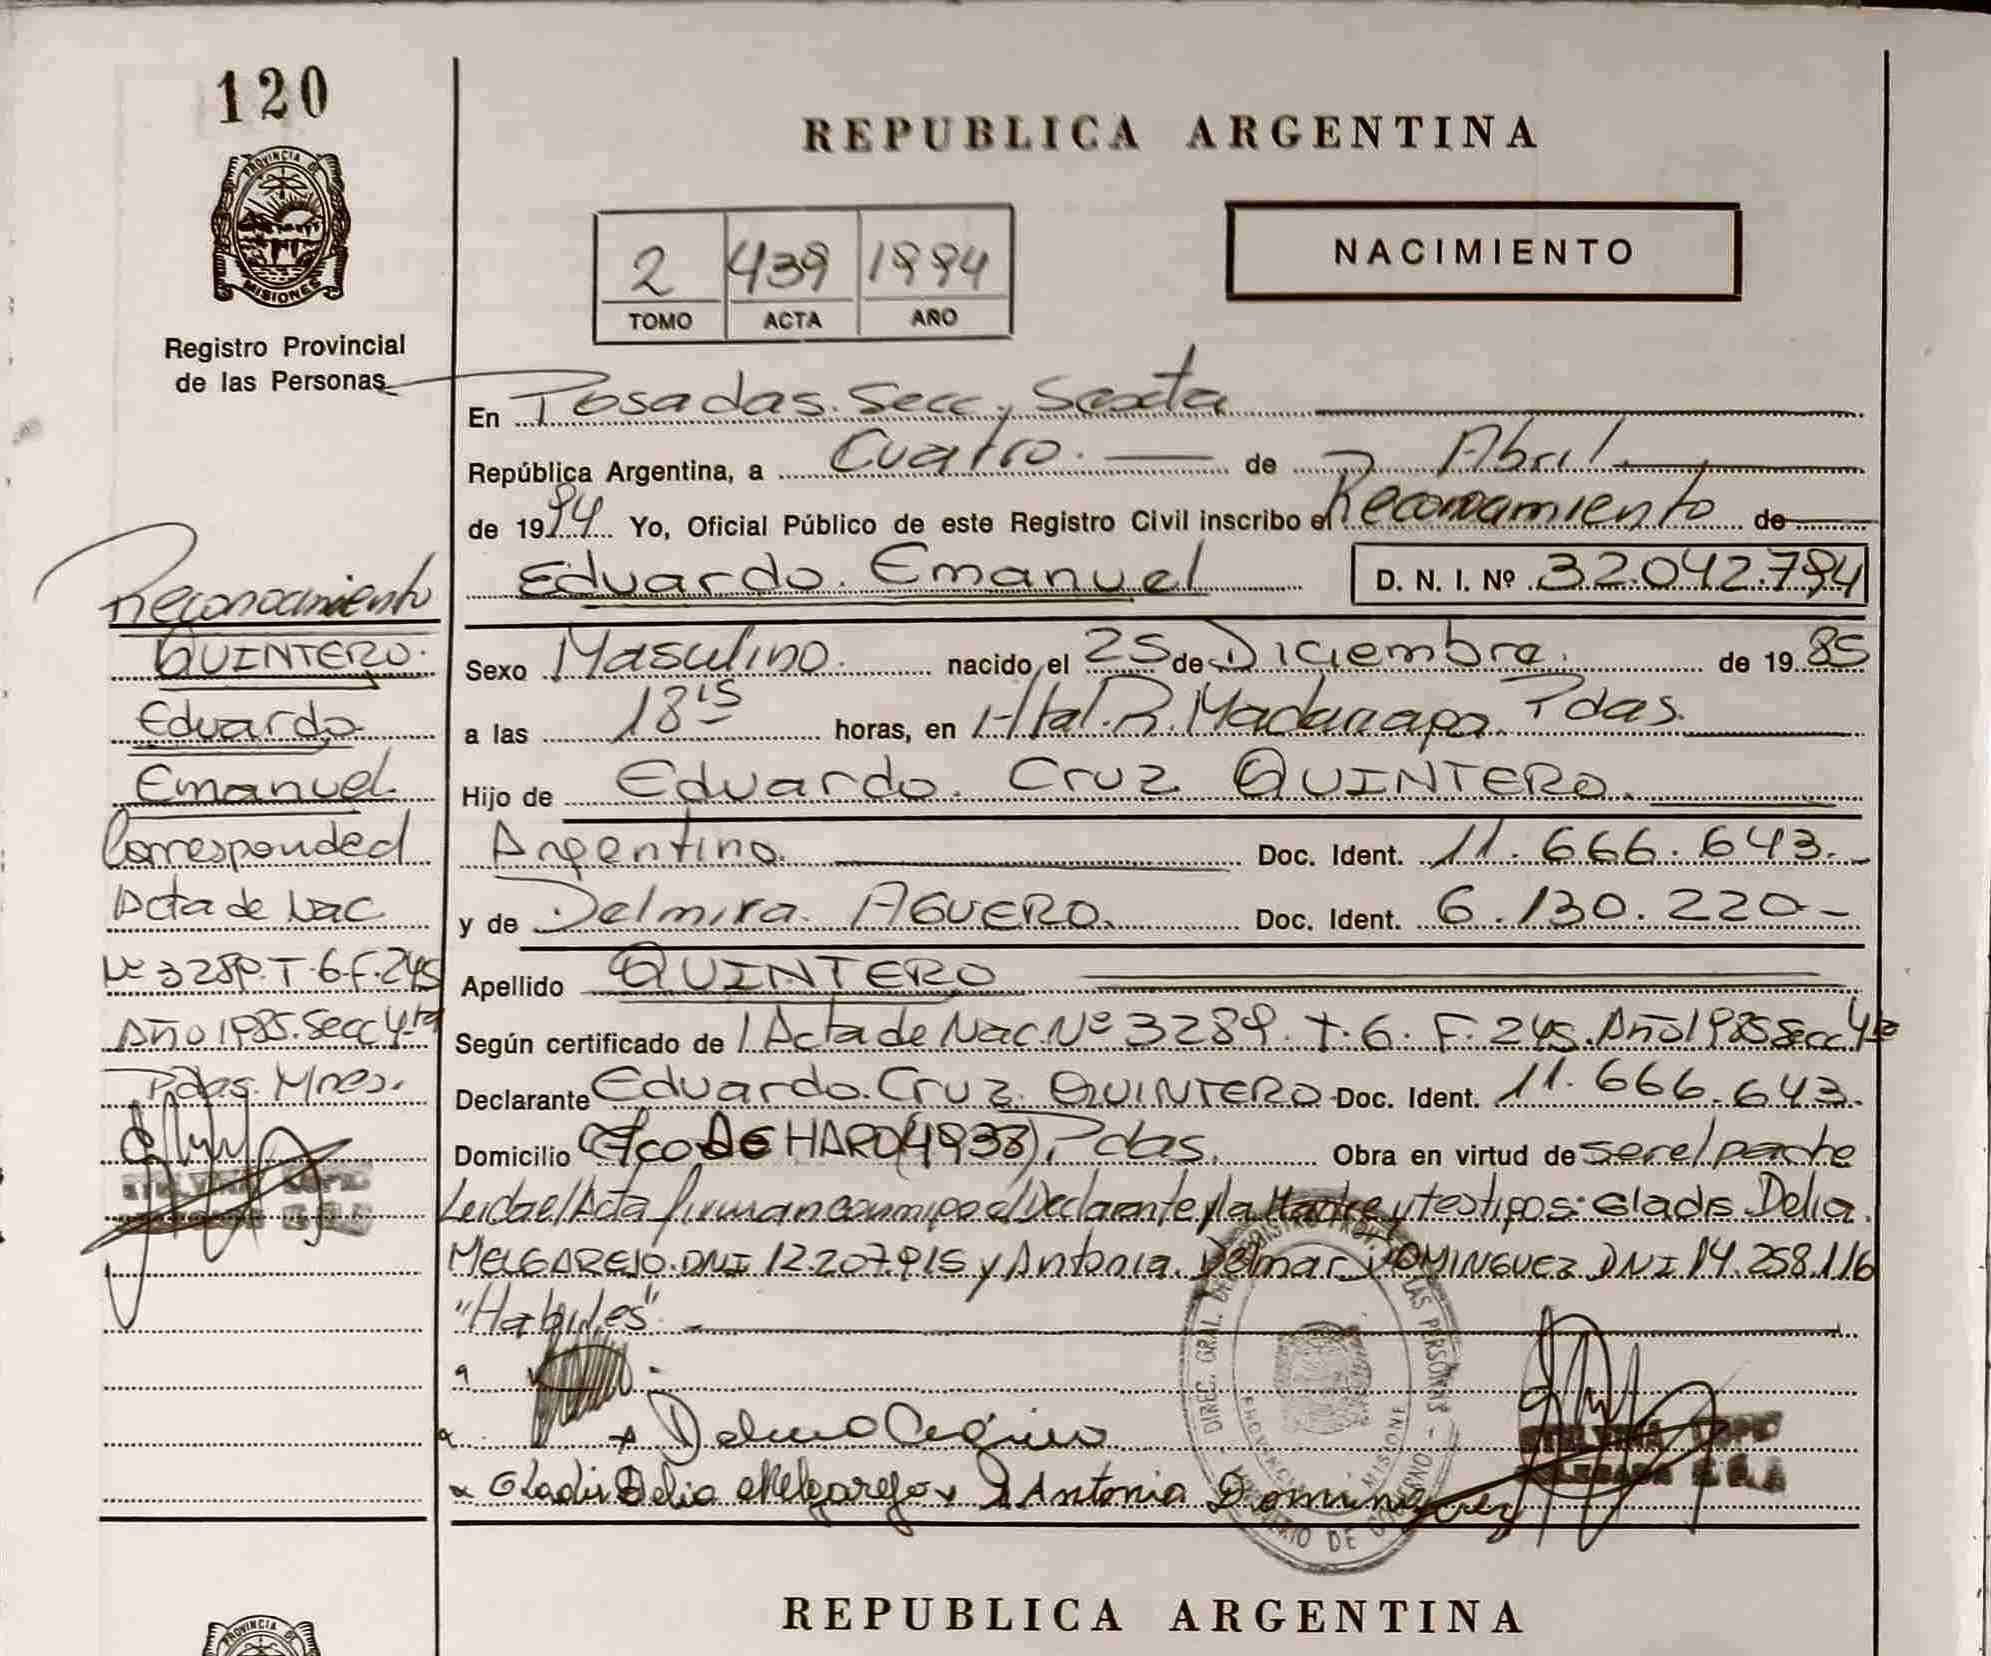 120
PROVINCIA DE
MISIONES
Registro Provincial
de las Personas
REPUBLICA ARGENTINA
NACIMIENTO
2 439 1994
TOMO ACTA AÑO
En Posadas. Secc. Sexta
República Argentina, a Cuatro. de Abril.
de 1994 Yo, Oficial Público de este Registro Civil inscribo el Reconocimiento de
Eduardo. Emanuel D. N. I. Nº 32.042.794
Sexo Masculino. nacido el 25 de Diciembre. de 1985
a las 18 15 horas, en Htal. R. Madariaga Pdas.
Hijo de Eduardo. Cruz QUINTERO.
Argentino. Doc. Ident. 11.666.643.
y de Delmira AGUERO. Doc. Ident. 6.130.220
Apellido QUINTERO
Según certificado de Acta de Nac. Nº 3289. T. 6. F. 245. Año 1985 Secc 4ta
Declarante Eduardo. Cruz QUINTERO Doc. Ident. 11.666.643.
Domicilio DE HARO (4938) Pdas. Obra en virtud de ser el padre
Leida el Acta firman conmigo el Declarante y la Madre y testigos: Gladis Delia.
MELGAREJO. DNI 12.207.915 y Antonia. Delmar DOMINGUEZ DNI 14.258.116
"Habiles"
Gladis Delia Melgarejo Antonia Dominguez
Reconocimiento
QUINTERO.
Eduardo
Emanuel.
Corresponde al
Acta de Nac
Nº 3289. T. 6. F. 245
Año 1985. Secc 4ta
Pdas. Mnes.
DIREC. GRAL. DE REGISTRO LAS PERSONAS
MINISTERIO DE GOBIERNO
PROVINCIA MISIONES
REPUBLICA ARGENTINA
PROVINCIA DE